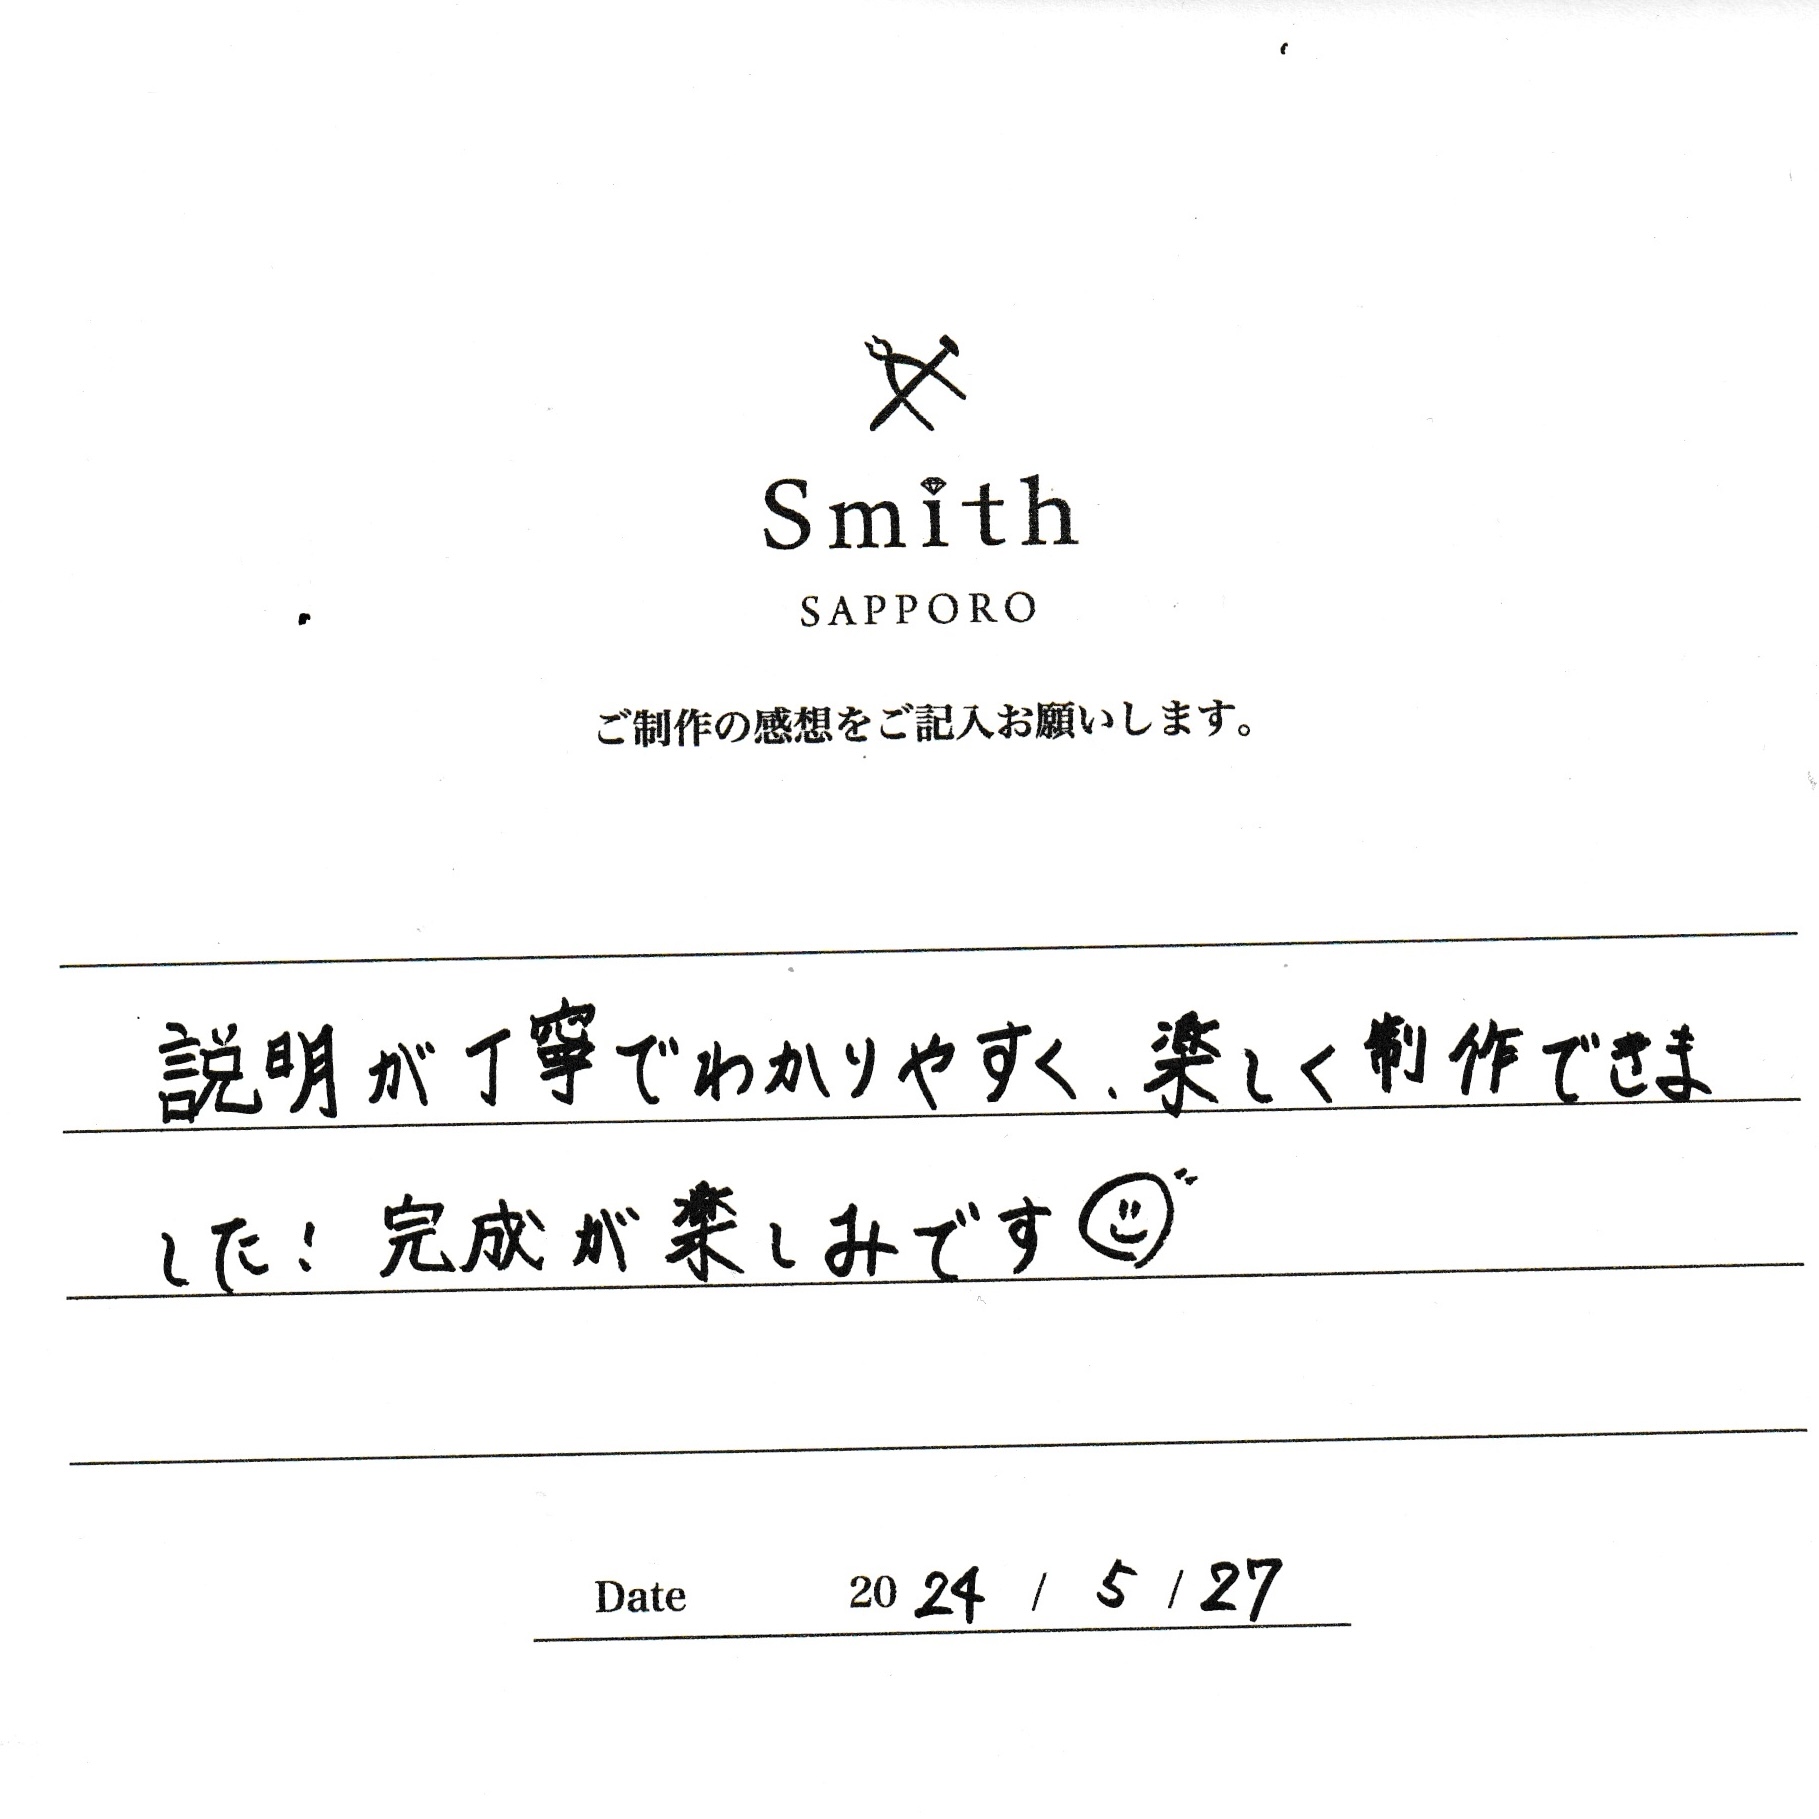 Smith
SAPPORO
ご制作の感想をご記入お願いします。
説明が丁寧でわかりやすく、楽しく制作できま
した! 完成が楽しみです
Date 2024 / 5 / 27